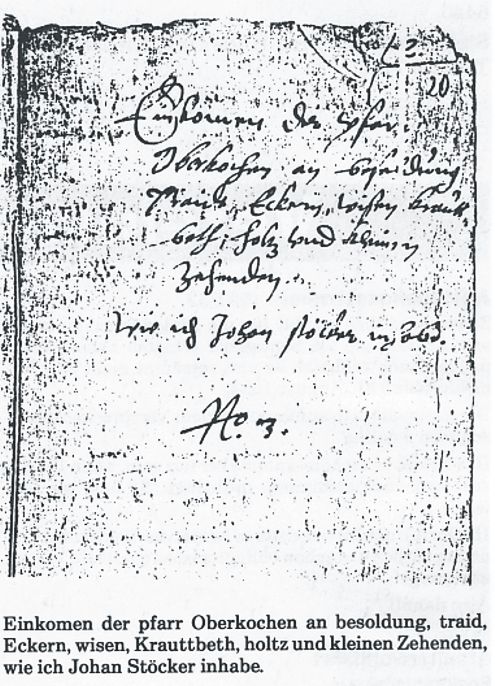 2
20
Einkomen der pfar
Oberkochen an besoldung
traid, Eckern, wisen kraut-
beth, holz und kleinen
Zehenden.
Wie ich Johan stöcker inhab.
No. 3.
Einkomen der pfarr Oberkochen an besoldung, traid,
Eckern, wisen, Krauttbeth, holtz und kleinen Zehenden,
wie ich Johan Stöcker inhabe.